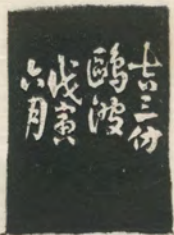 吉三仿
鷗波
戊寅
六月